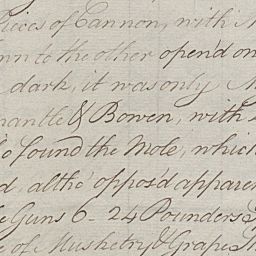 Pieces of Cannon, with
to the other opend on
dark, it was only
mantle & Bowen, with
found the Mole, which
altho' oppos'd apparen
Guns 6 - 24 Pounders
of Musketry & Grape